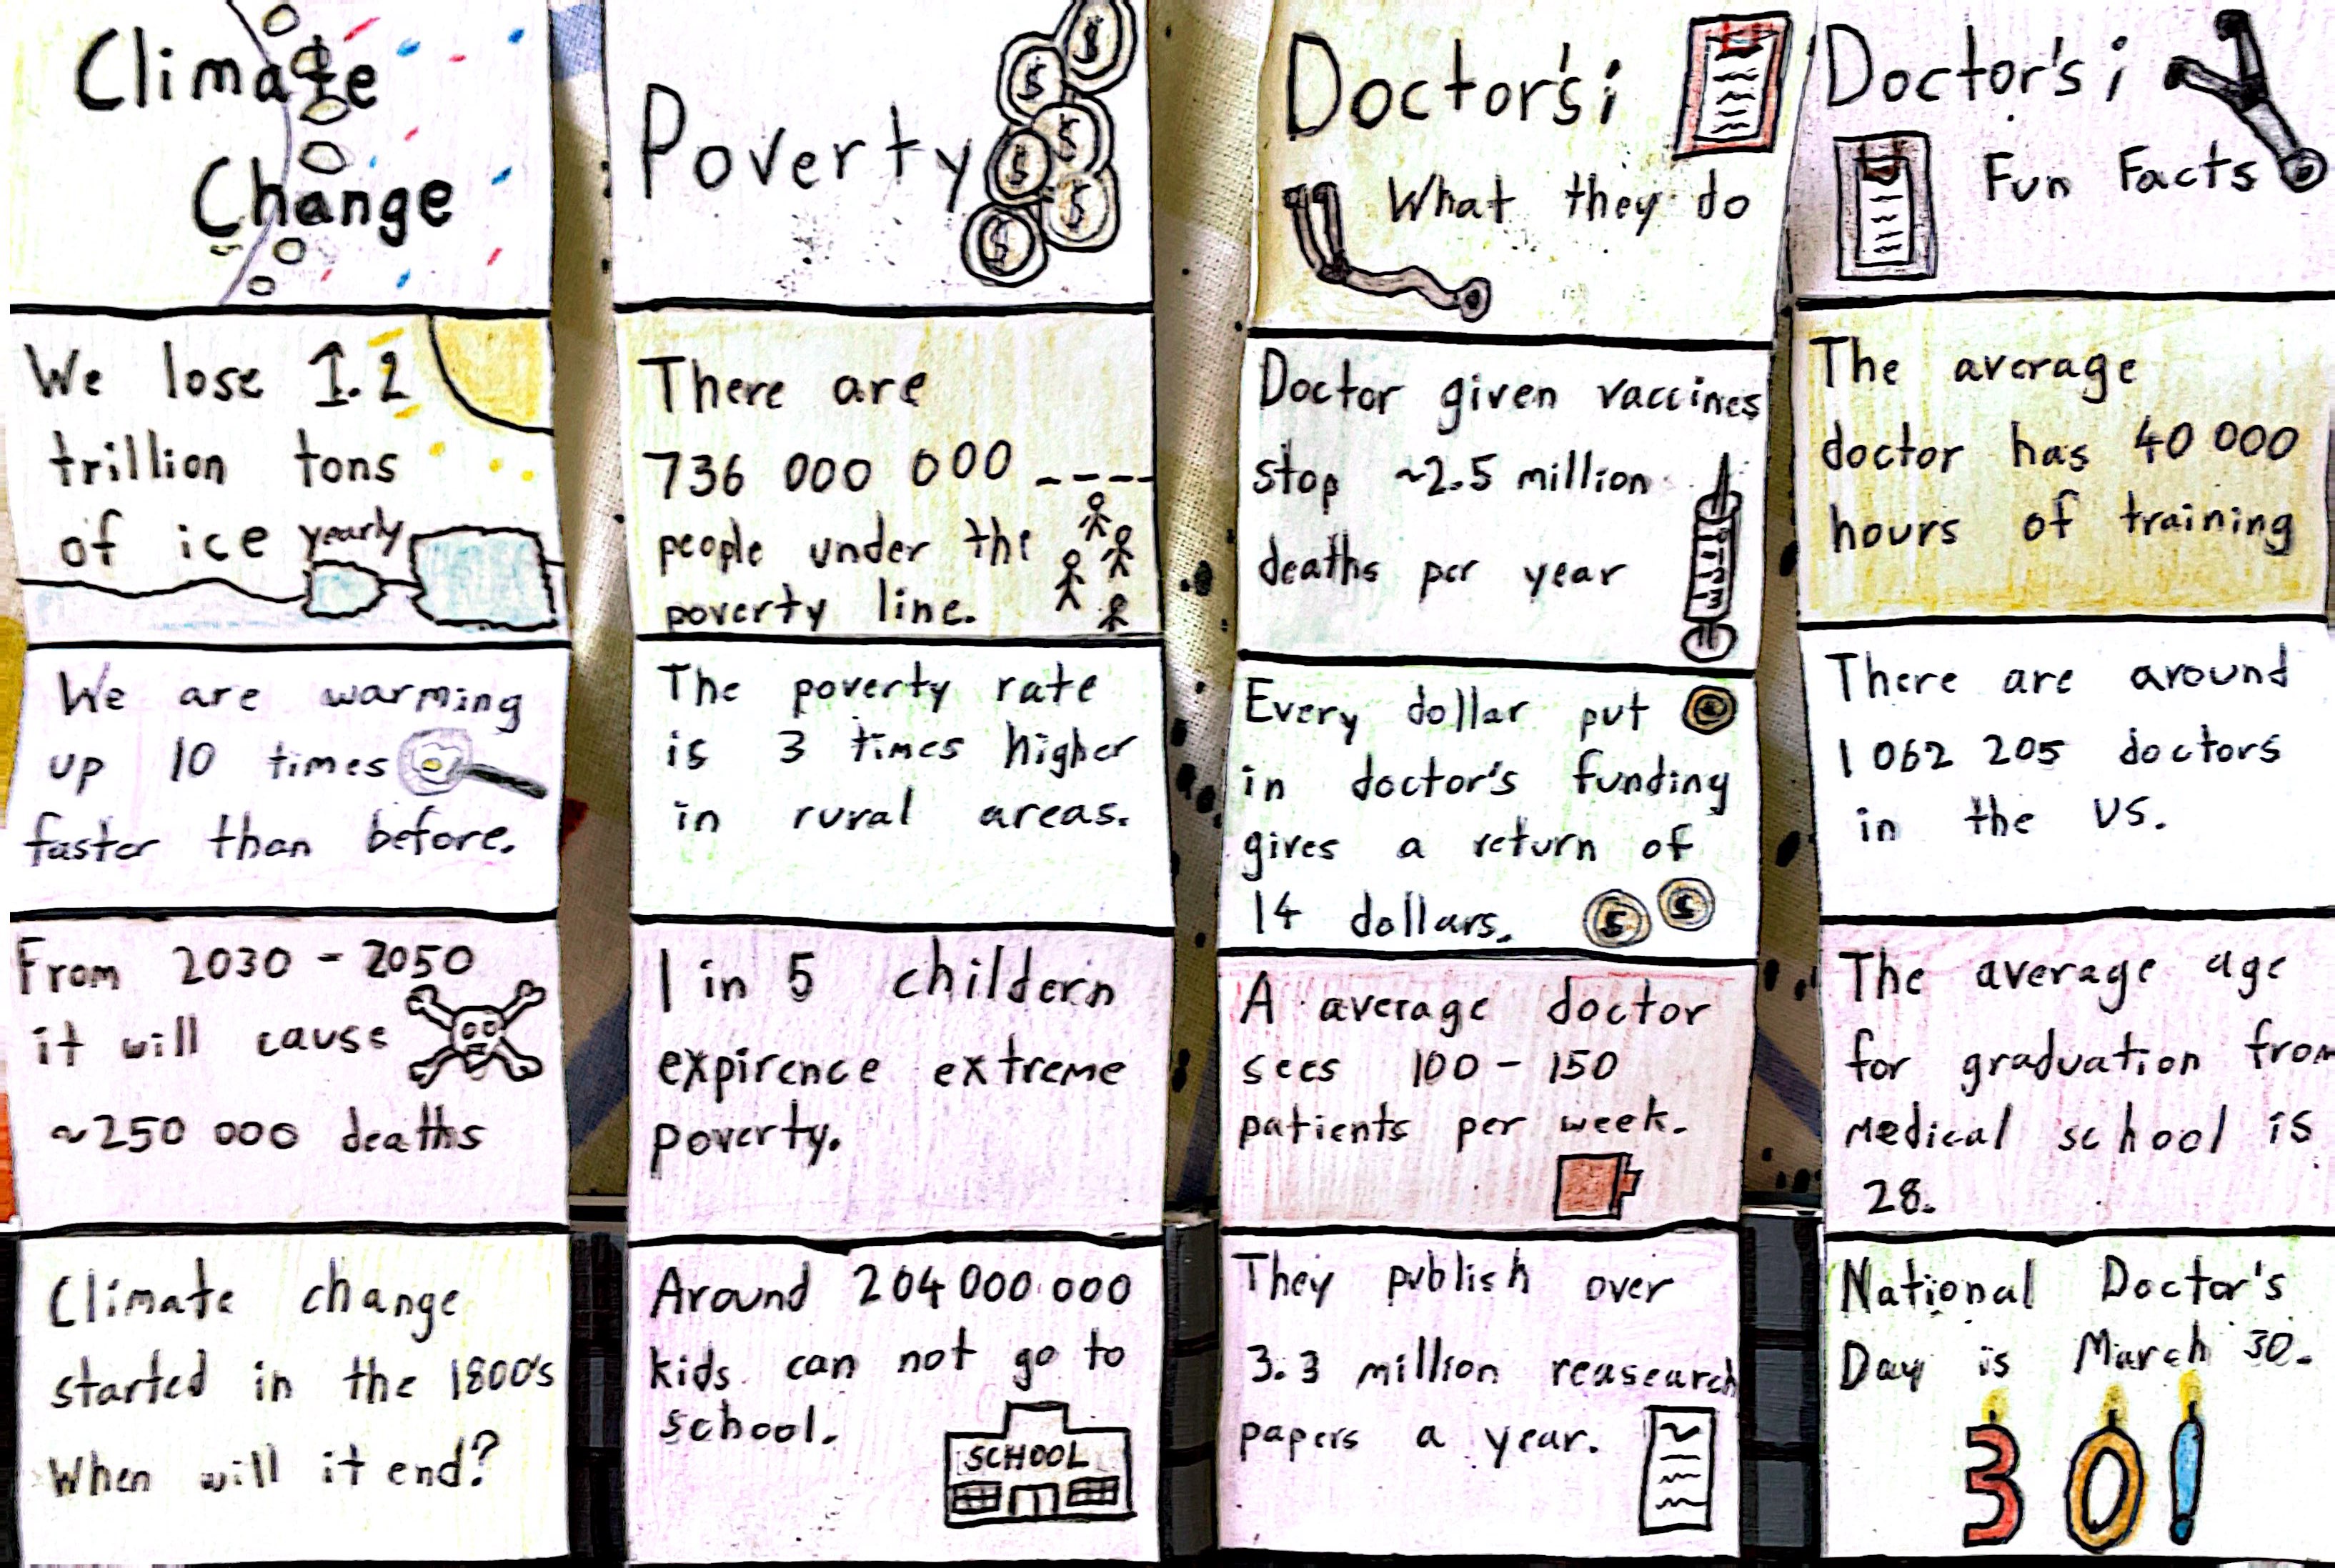 Climate
Change
We lose 1.2
trillion tons
of ice yearly
We are warming
up 10 times
faster than before.
From 2030 - 2050
it will cause
~250 000 deaths
Climate change
started in the 1800's
When will it end?
Poverty
$
$
$
$
$
$
There are
736 000 000
people under the
poverty line.
The poverty rate
is 3 times higher
in rural areas.
1 in 5 childern
expirence extreme
poverty.
Around 204 000 000
kids can not go to
school.
SCHOOL
Doctor's;
What they do
Doctor given vaccines
stop ~2.5 million
deaths per year
Every dollar put
in doctor's funding
gives a return of
14 dollars.
$ $
A average doctor
sees 100 - 150
patients per week.
They publish over
3.3 million reasearch
papers a year.
Doctor's;
Fun Facts
The average
doctor has 40 000
hours of training
There are around
1 062 205 doctors
in the US.
The average age
for graduation from
medical school is
28.
National Doctor's
Day is March 30.
30!